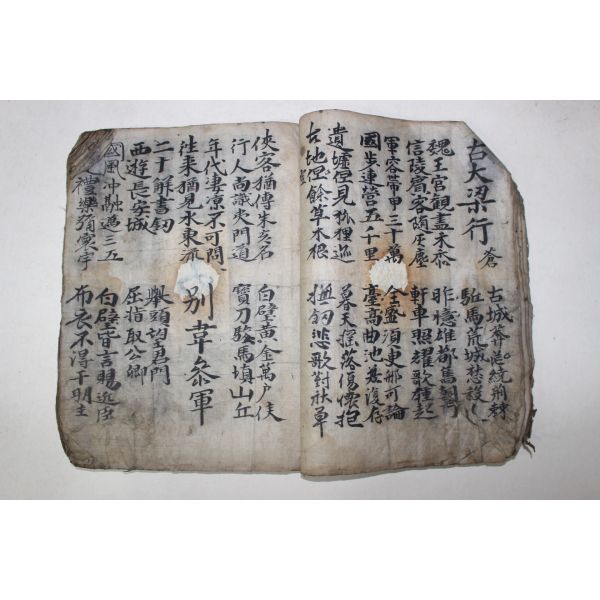 古大梁行
蒼
古城莽饒荊棘
駈馬荒城愁殺人
魏王宮觀盡禾黍
信陵賓客随灰塵
昨憶雄都舊朝市
軒車照耀歌鍾起
軍容帶甲三十萬
國步連營五千里
全盛須臾那可論
臺高曲池無復存
遺墟但見狐狸迹
古地但餘草木根
暮天搖落傷懷抱
撫釖悲歌對秋草
俠客猶傳朱亥名
行人尚識夷門道
白璧黃金萬戶侯
寶刀駿馬填山丘
年代凄凉不可問
徃来猶見水東流
別韋參軍
二十解書釖
西遊長安城
舉頭望君門
屈指取公卿
國風冲融邁三五
禮樂彌寰宇
白璧皆言賜近臣
布衣不得干明主